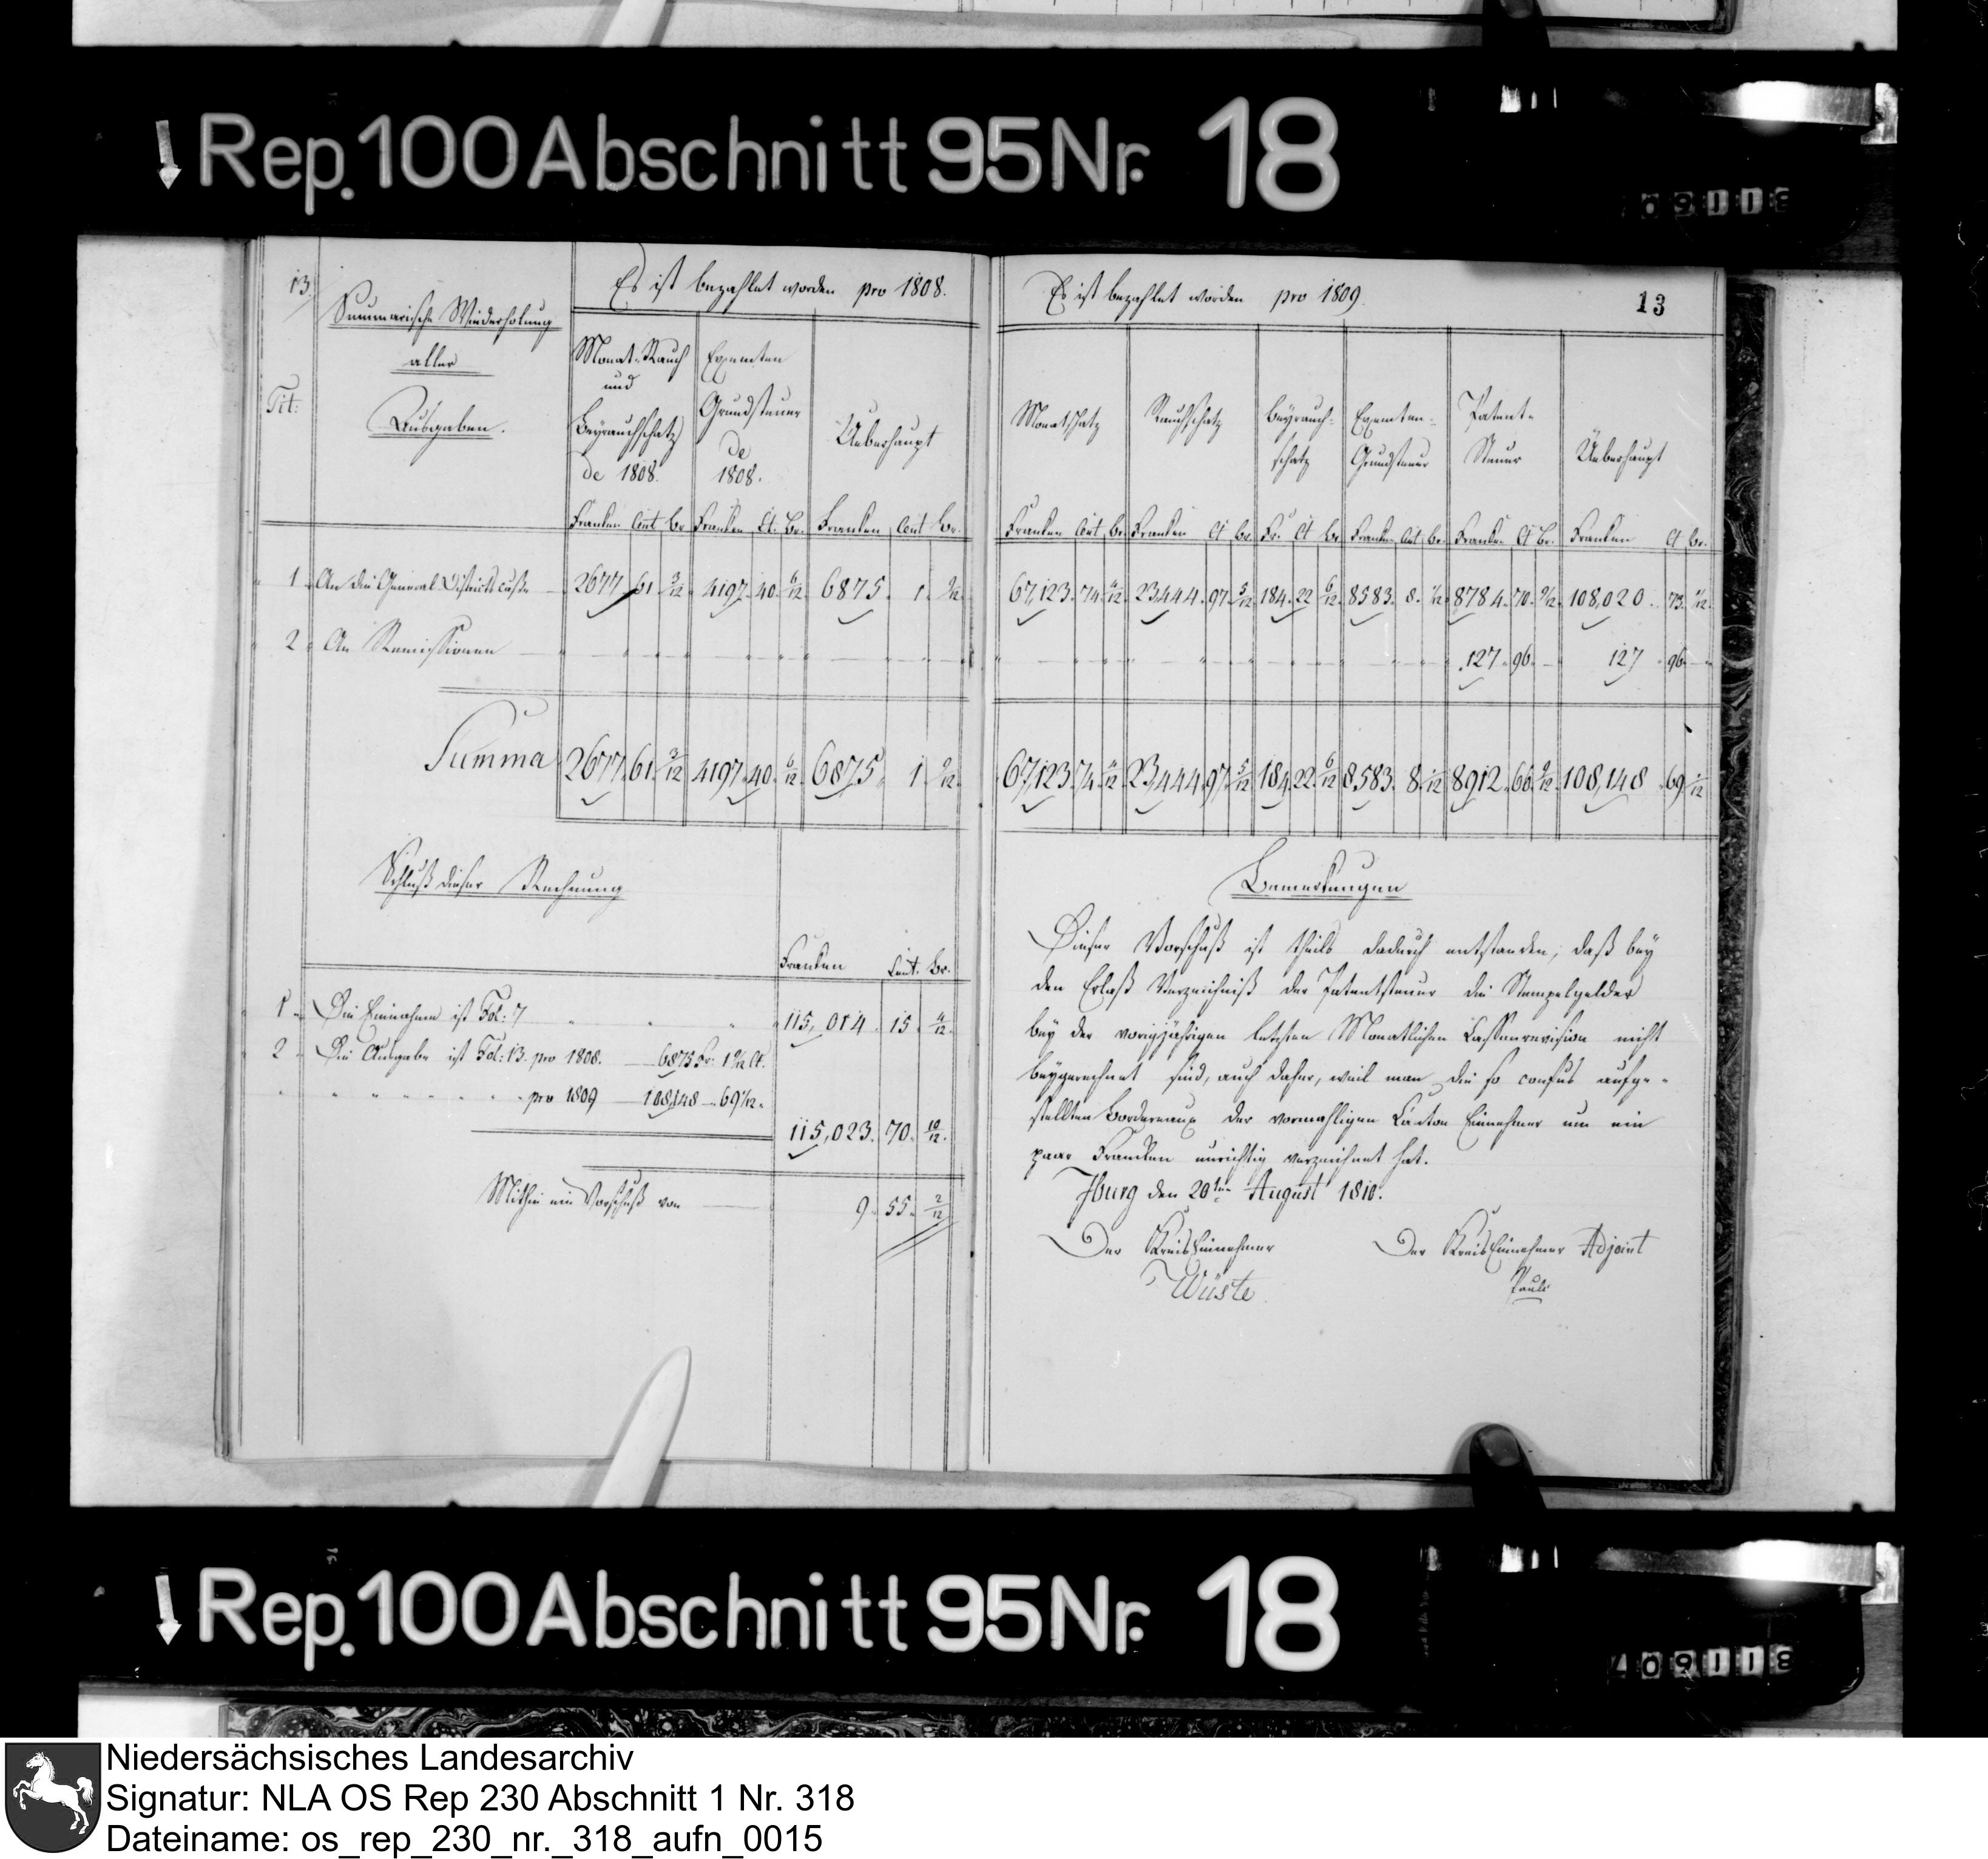 Rep. 100 Abschnitt 95 Nr. 18
409118
13.
Summarische Wiederholung
aller
Ausgaben.
Tit:
Es ist bezahlet worden pro 1808.
Monat-Rauch
und
Beyrauchschatz
de 1808.
Exemten
Grundsteuer
de
1808.
Ueberhaupt
Franken Cent Br. Franken Ct. Br. Franken Cent Br.
1 An die General Districts casse 2677 61 3/12 4197 40 6/12 6875 1 9/12
2 An Remissionen
Summa 2677 61 3/12 4197 40 6/12 6875 1 9/12
Schluß dieser Rechnung
Franken Cent. Br.
1 Die Einnahme ist Fol: 7 115,014 15 4/12
Die Ausgabe ist Fol: 13. pro 1808. 6875 Fr. 1 9/12 Ct.
2 pro 1809 108,148 69 1/12
115,023. 70. 10/12
Mithin ein Vorschuß von 9. 55. 2/12
Es ist bezahlet worden pro 1809.
13
Monatschatz
Rauchschatz
Beyrauch-
schatz
Exemten-
Grundsteuer
Patent-
Steuer
Ueberhaupt
Franken Cent Br. Franken Ct Br. Fr. Ct Br. Franken Cent Br. Franken Ct Br. Franken Ct Br.
67,123. 74. 23,444. 97. 5/12 184. 22 6/12 8583. 8. 1/12 8784. 70. 9/12 108,020. 73. 1/12
127 96 127 96
67,123. 74. 23,444. 97. 5/12 184. 22. 6/12 8,583. 8. 1/12 8912. 66. 9/12 108,148 69 1/12
Bemerkungen
Dieser Vorschuß ist theils dadurch entstanden, daß bey
den Erlaß Verzeichniß der Patentsteuer die Stempelgelder
bey der vorigjährigen letzten Monatlichen Cassenrevision nicht
beygerechnet sind, auch daher, weil man die so confus aufge-
stellten Bordereaux der vormahligen Canton Einnehmer um ein
paar Franken unrichtig verzeichnet hat.
Iburg den 20ten August 1810.
Der KreisEinnehmer
Wüste
Der KreisEinnehmer Adjoint
Pauli
Rep. 100 Abschnitt 95 Nr. 18
409118
Niedersächsisches Landesarchiv
Signatur: NLA OS Rep 230 Abschnitt 1 Nr. 318
Dateiname: os_rep_230_nr._318_aufn_0015